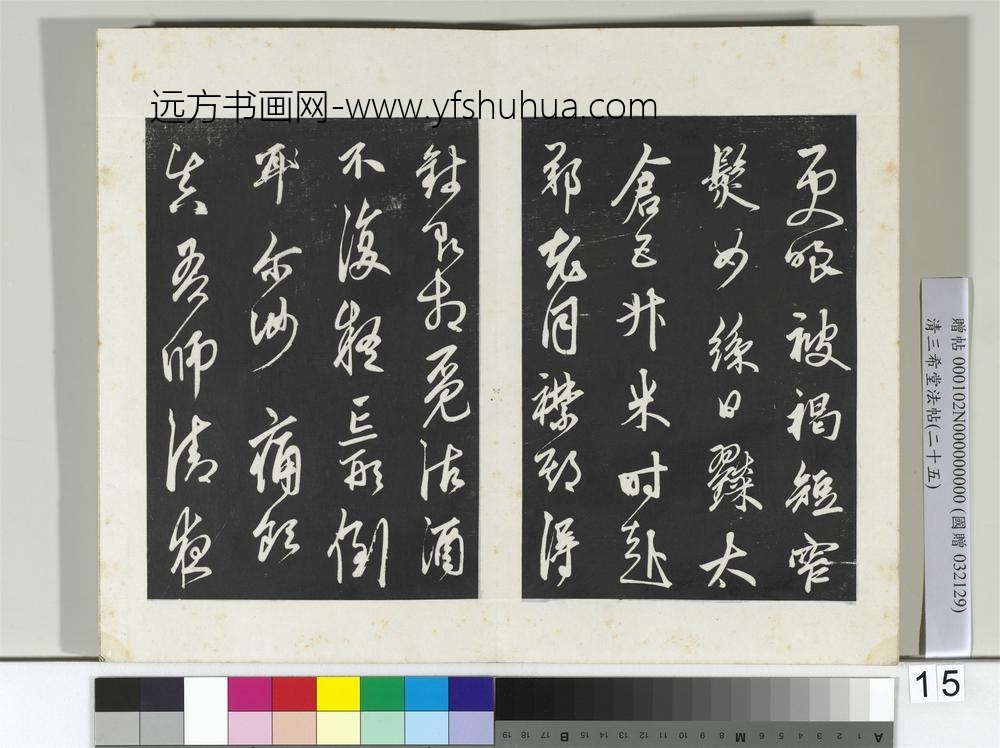 远方书画网-www.yfshuhua.com
更嗤被褐短窄
鬢如絲日糴太
倉五升米時赴
鄭老同襟期得
錢即相覓沽酒
不復疑忘形倒
耳尔汝痛飲
真吾師清夜
贈帖 000102N000000000 (國贈 032129)
清三希堂法帖(二十五)
15
A 1 2 3 4 5 6 M 8 9 10 11 12 13 14 15 B 17 18 19